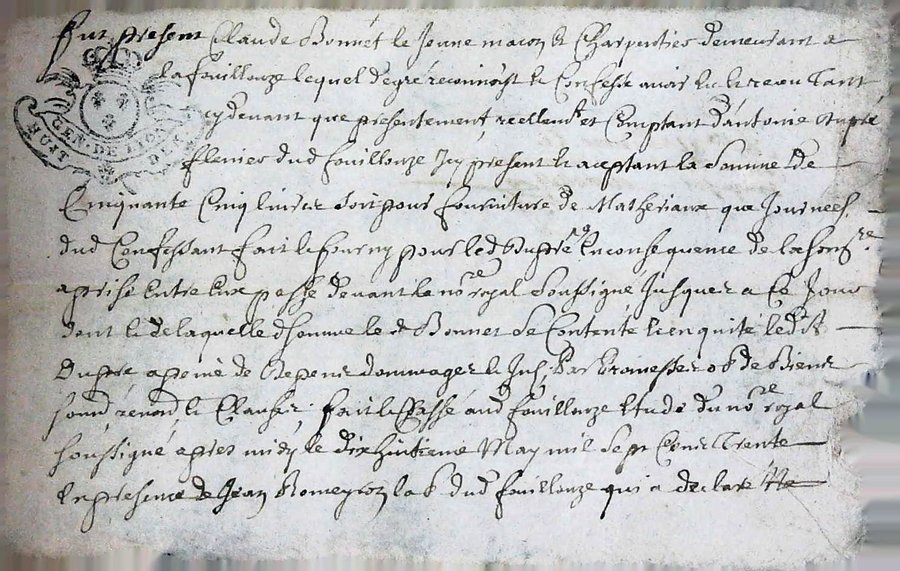 Fut present Claude Bonnet le Jeune macon & Charpentier demeurant a
la fouillouze lequel degre reconnoist & Confesse avoir heu & receu Tant
cydevant que presentement reellemt et Comptant d'antoine dupré
dud fouillouze Icy present & aceptant la somme de
Cinquante Cinq livres soit pour fourniture de Matheriaux que Journees
dud Confessant fait & fourny pour led Dupré En consequence de la
a prise Entre Eux passé devant le nore royal Soussigné Jusques a Ce Jour
dont & de laquelle dsomme le d Bonnet Se Contente & en quite ledit
Dupré a peine de Depens dommages & Par Promesses ob de Biens
Soumd renond & Clauses fait & Passé aud fouillouze Etude du nore royal
soussigné apres midy le dix huitieme May mil Sept Cens Trente
En presence de Jean Romeyron lab dud fouillouze qui a declare Ne
HUIT GEN. DE LION